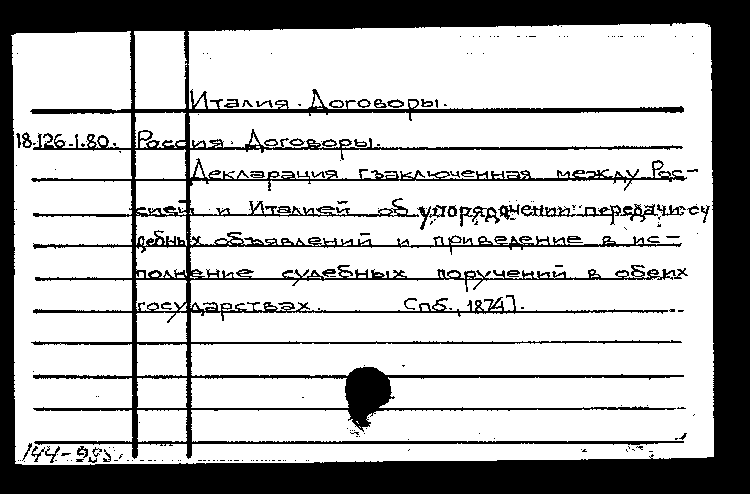 Италия. Договоры.
18.126.1.80. Россия. Договоры.
Декларация [заключенная между Рос-
сией и Италией об упорядочении передачи су
дебных объявлений и приведение в ис-
полнение судебных поручений в обеих
государствах. Спб., 1874].